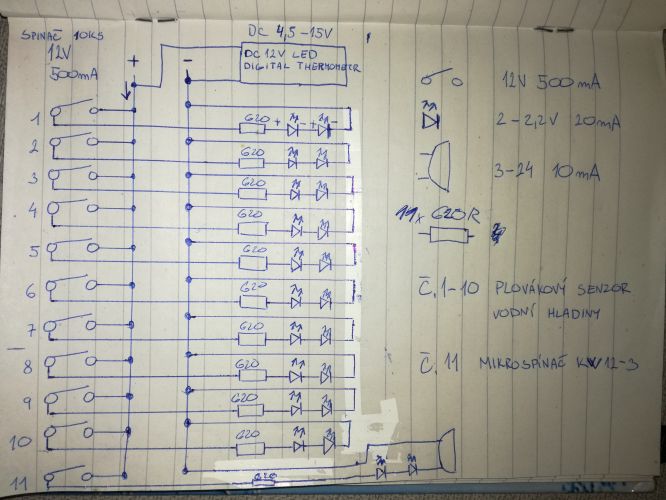 SPINAČ 10KS
12V
500mA
+
-
DC 4,5 - 15V
DC 12V LED
DIGITAL THERMOMETR
1
620
+
-
+
-
2
620
3
620
4
620
5
620
6
620
7
620
8
620
9
620
10
620
11
620
12V 500mA
2-2,2V 20mA
3-24 10mA
11x 620R
Č.1-10 PLOVÁKOVÝ SENZOR
VODNÍ HLADINY
Č.11 MIKROSPÍNAČ KW12-3